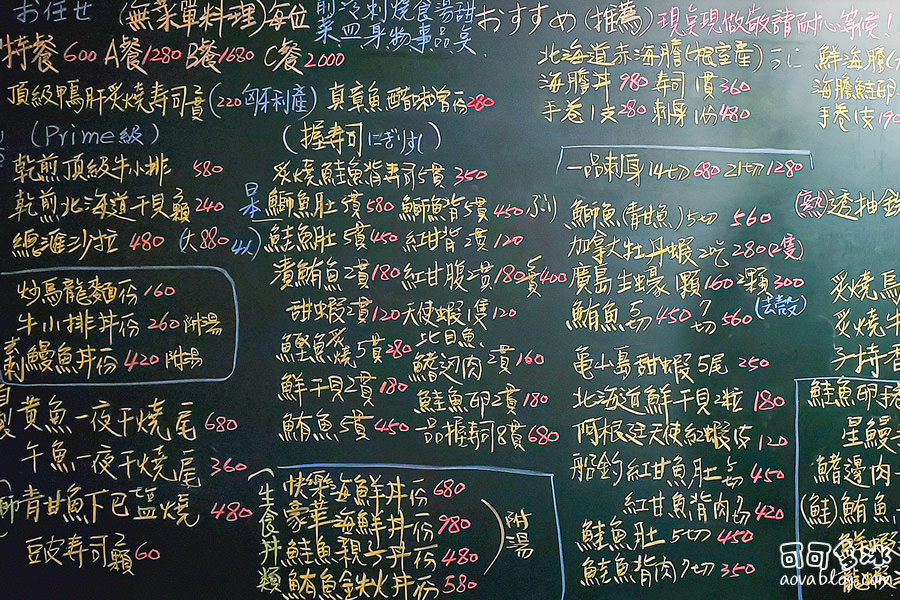 おまかせ (無菜單料理)每位
前菜 冷皿 刺身 燒物 食事 湯品 甜点
特餐600 A餐1280 B餐1680 C餐2000
頂級鴨肝炙燒壽司1貫(220匈牙利產)
真章魚酢味噌1份280
(Prime級)
乾煎頂級牛小排 580
乾煎北海道干貝1顆240
總滙沙拉 480 (大880 4人)
炒烏龍麵1份160
牛小排丼1份260附湯
鰻魚丼1份420附湯
黃魚一夜干燒1尾680
午魚一夜干燒1尾360
青甘魚下巴鹽燒 480
豆皮壽司1顆60
(握壽司にぎりすし)
炙燒鮭魚背壽司5貫350
日本
鰤魚肚5貫580 鰤魚背5貫450ぶり
鮭魚肚5貫450 紅甘背2貫120
漬鮪魚2貫180 紅甘腹2貫180 5貫400
甜蝦2貫120 天使蝦1隻120
鰹魚炙燒5貫280 比目魚鰭邊肉2貫160
鮮干貝2貫180 鮭魚卵2貫180
鮪魚5貫450 一品握壽司8貫680
生食丼類
快樂海鮮丼1份680
豪華海鮮丼1份980
鮭魚親子丼1份480
鮪魚鐵火丼1份580
附湯
おすすめ(推薦)現點現做敬請耐心等候!
北海道赤海膽(根室產)うに
海膽丼980 壽司1貫360
手卷1支280 刺身1份480
一品刺身14切680 21切1280
鰤魚(青甘魚)5切 560
加拿大牡丹蝦2吃280(2隻)
廣島生蠔1顆160 2顆300
(去殼)
鮪魚5切450 7切560
龜山島甜蝦5尾 250
北海道鮮干貝2粒 180
阿根廷天使紅蝦1隻 120
船釣紅甘魚肚5切 450
紅甘魚背肉5切 420
鮭魚肚 5切450
鮭魚背肉7切350
鮮海膽
海膽鮭卵
手卷1支190
(熟)透抽
炙燒
炙燒
手持
鮭魚卵手
星鰻
鰭邊肉
(鮭)鮪魚
鮭蝦
龍蝦
可可多咪
aovablog.com